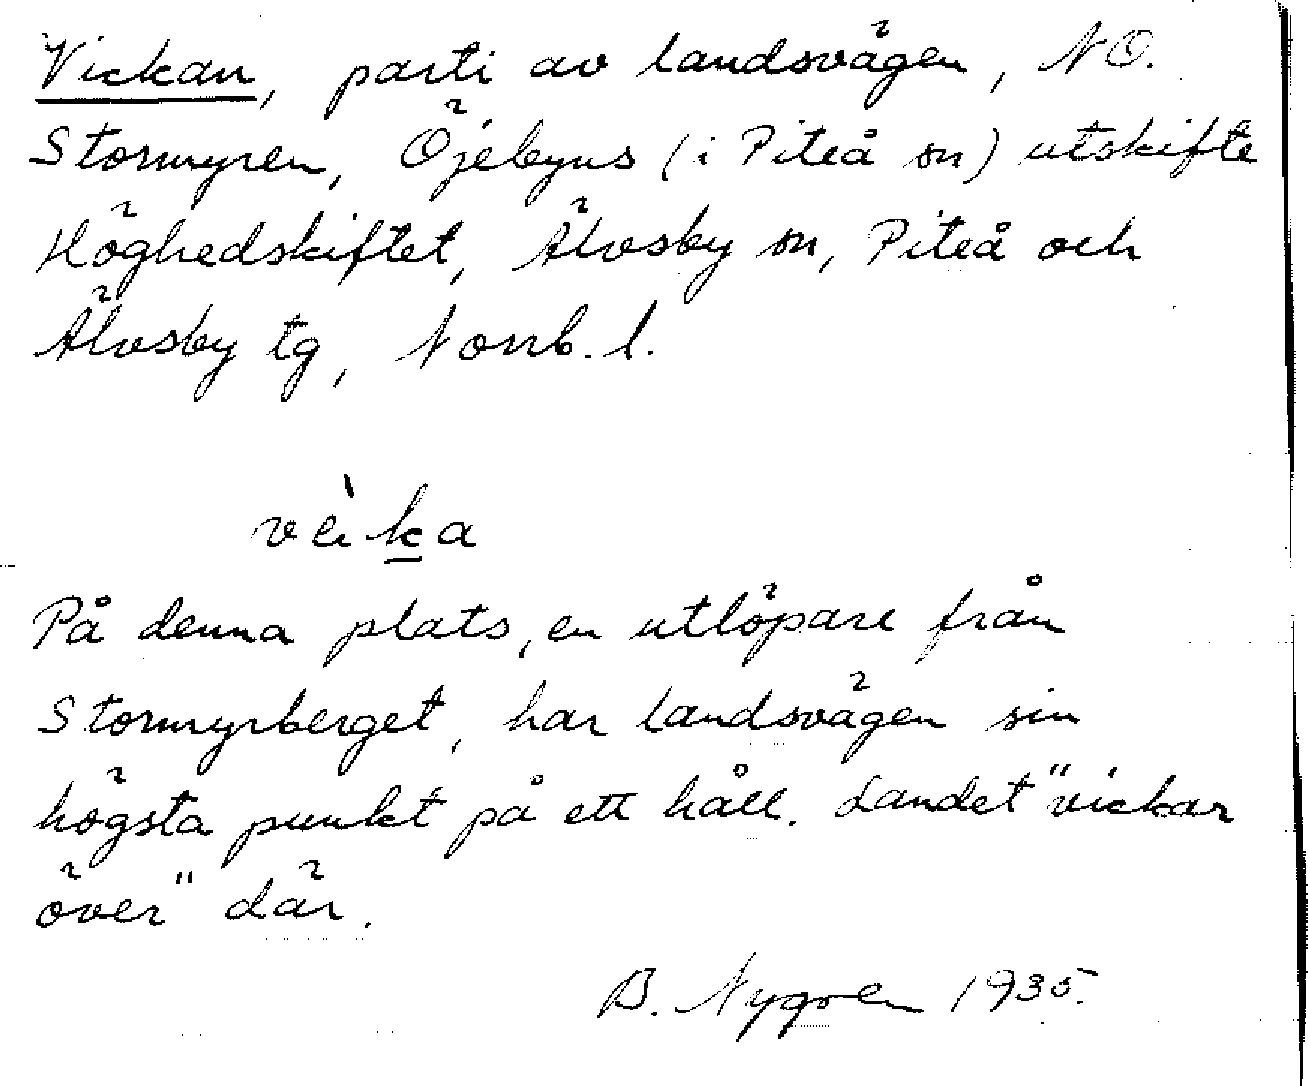 Vickan, parti av landsvägen, NO.
Stormyren, Öjebyns (i Piteå sn) utskifte
Höghedskiftet, Älvsby sn, Piteå och
Älvsby tg, Norrb. l.
På denna plats, en utlöpare från
Stormyrberget, har landsvägen sin
högsta punkt på ett håll. Landet "vickar
över" där.
B. Nygren 1935.